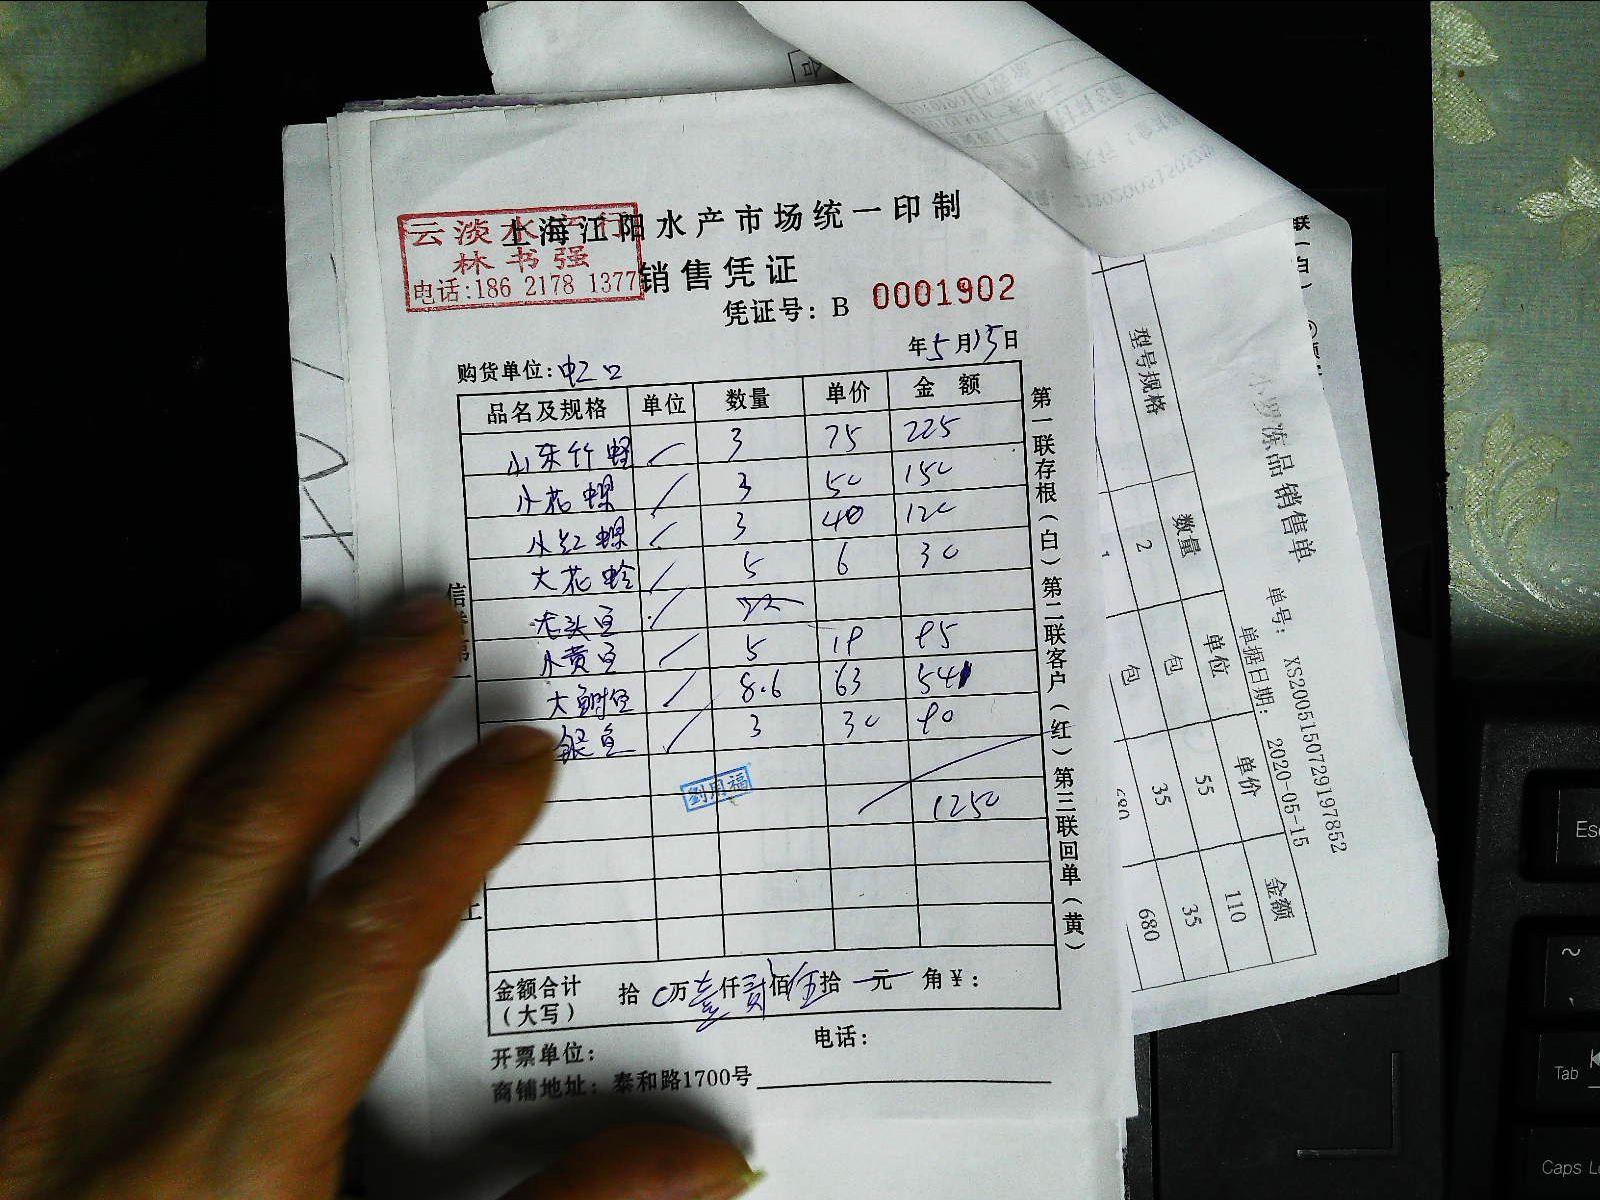 上海江阳水产市场统一印制
云淡水产行
林书强
电话:186 2178 1377
销售凭证
凭证号：B 0001902
年5月15日
购货单位：虹口
品名及规格 单位 数量 单价 金额
山东竹蛏 3 75 225
小花螺 3 50 150
小红螺 3 40 120
大花蛤 5 6 30
老头鱼
小黄鱼 5 19 95
大鲥鱼 8.6 63 541
银鱼 3 30 90
劉用福
1250
金额合计 拾0万壹仟贰佰伍拾元角¥：
（大写）
开票单位： 电话：
商铺地址：泰和路1700号
第一联存根（白）第二联客户（红）第三联回单（黄）
冻品销售单
单号： XS20051507291978 52
单据日期： 2020-05-15
型号规格 数量 单位 单价 金额
2 包 55 110
包 35 35
680 680
Esc
~
Tab
Caps L